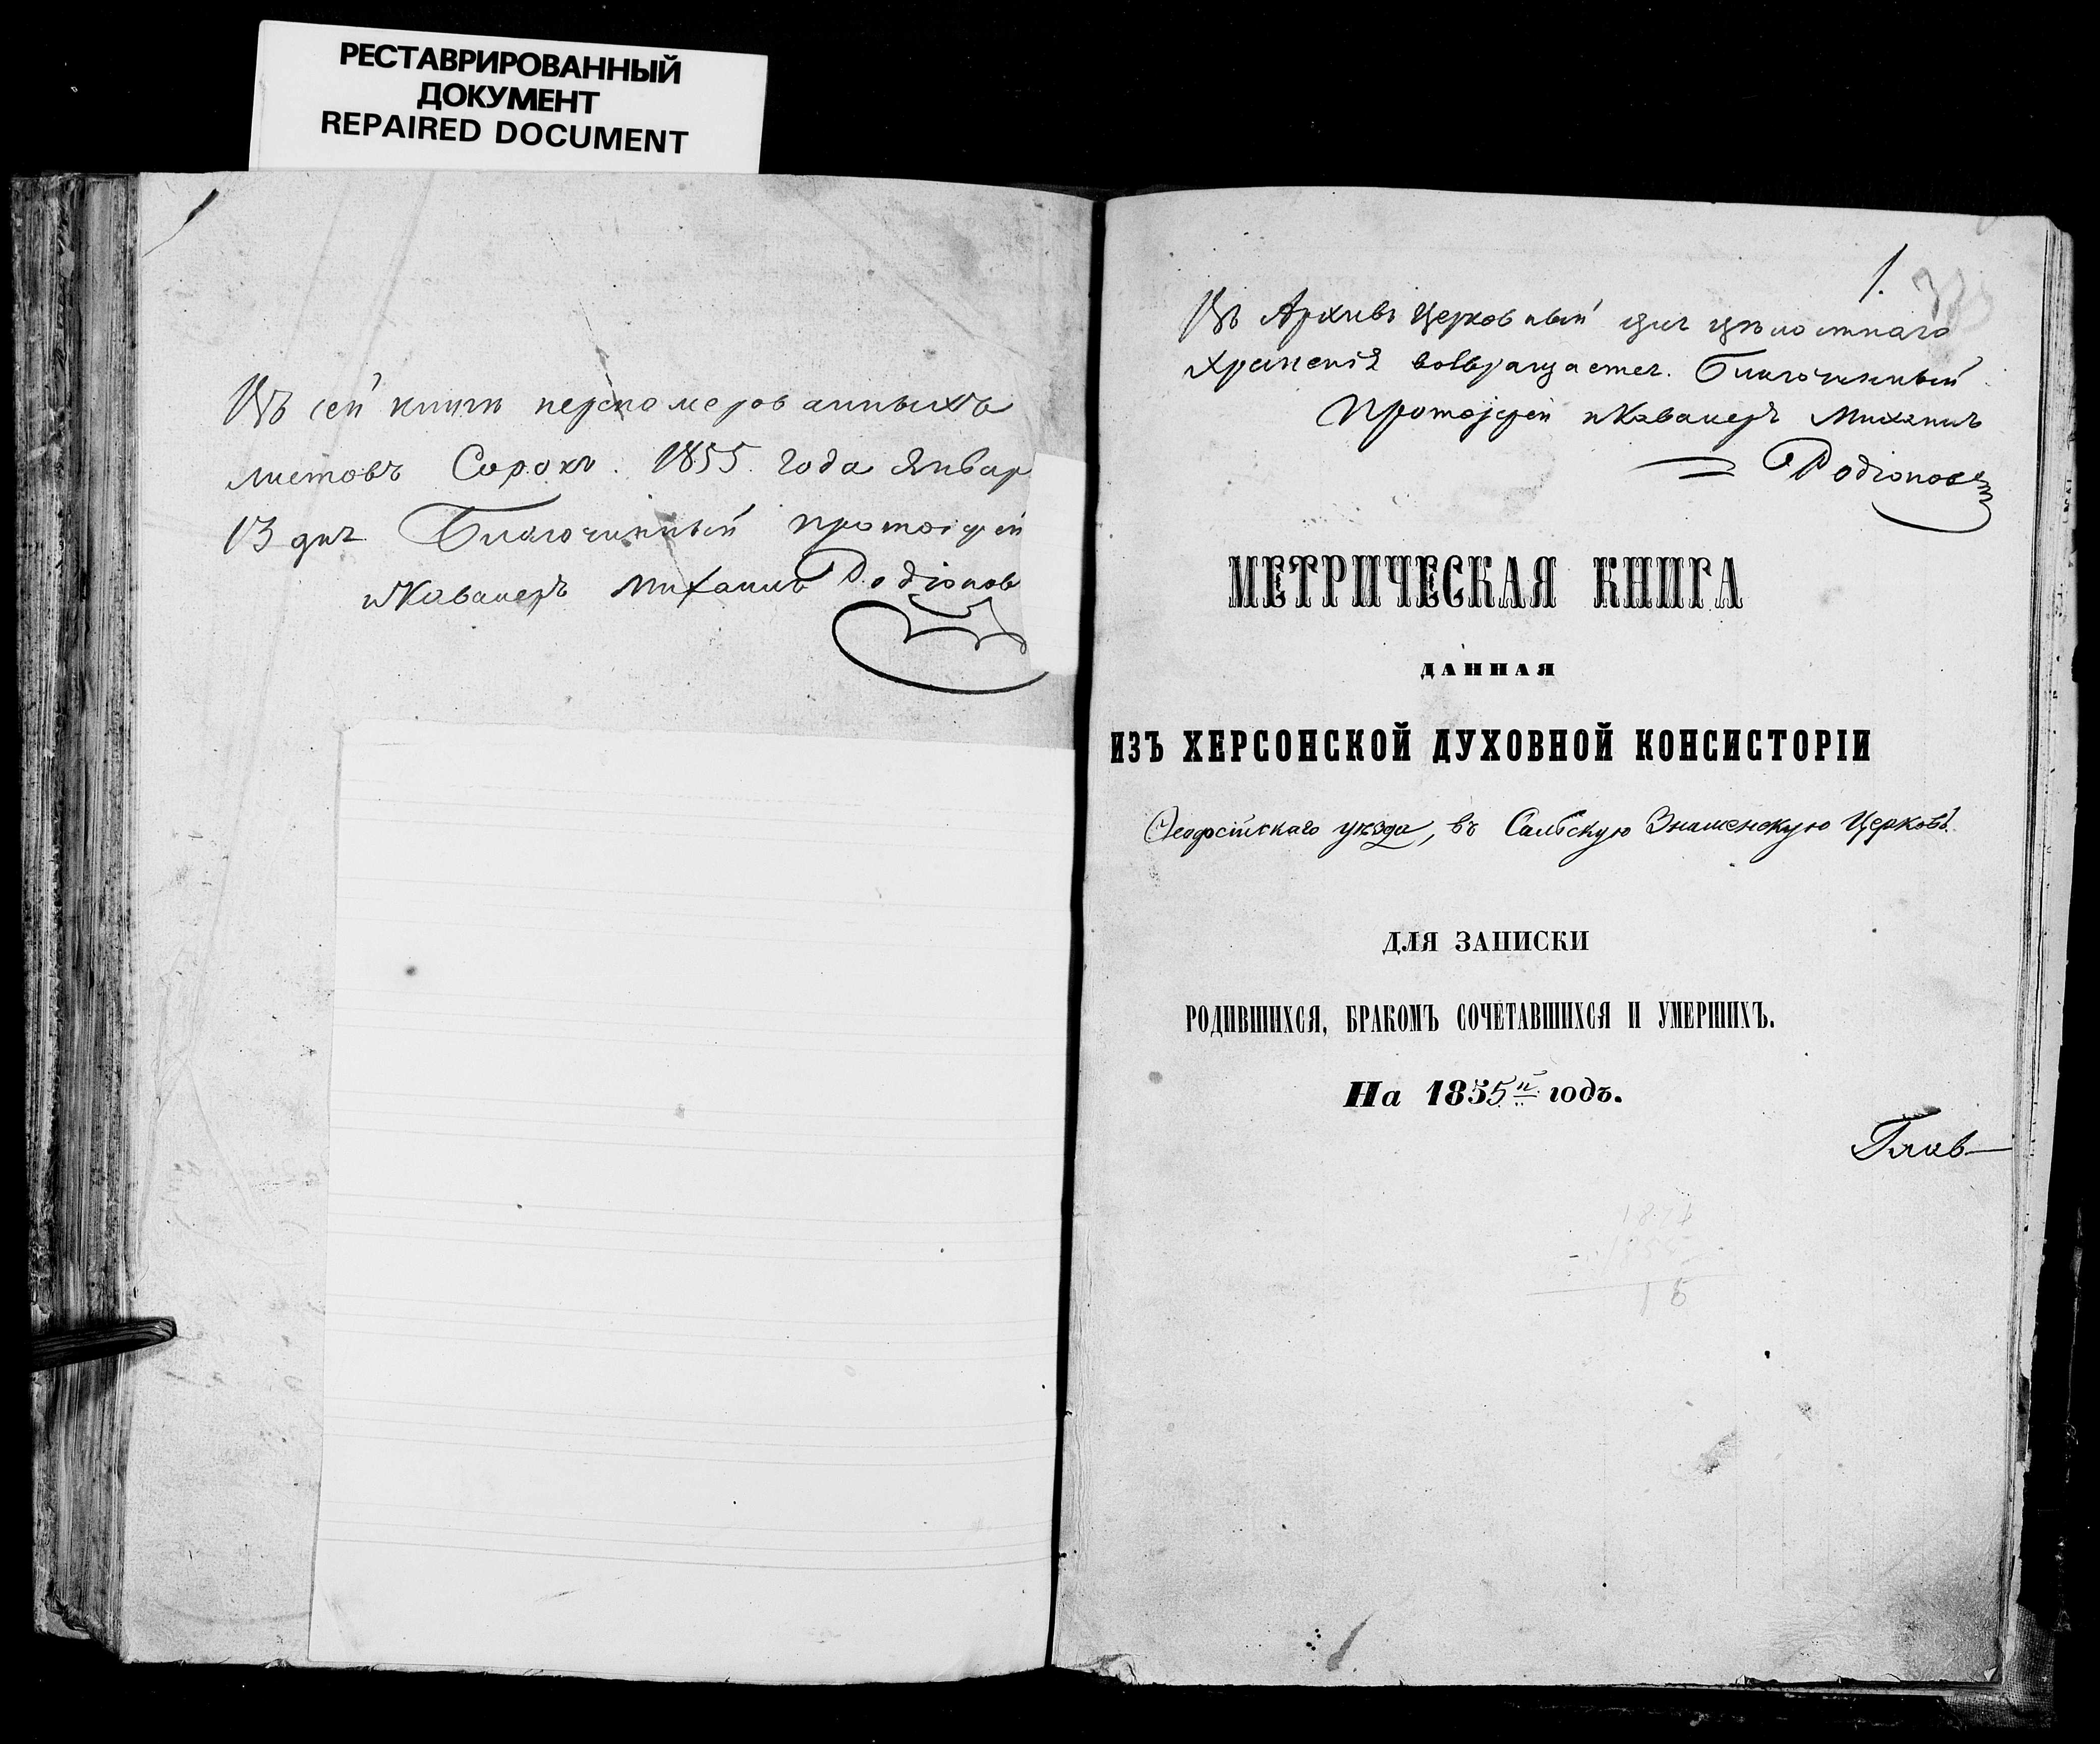 РЕСТАВРИРОВАННЫЙ
ДОКУМЕНТ
REPAIRED DOCUMENT
Въ сей книги перономерованныхъ
листовъ Сорокъ. 1855 года Январ
13 дня Благочинный протоіерей
и Кавалеръ Михаилъ Родіонов
1.
Въ Архивъ Церковный для цѣлостнаго
храненія возвращается. Благочинный
Протоіерей и Кавалеръ Михаилъ
Родіонов
МЕТРИЧЕСКАЯ КНИГА
ДАННАЯ
ИЗЪ ХЕРСОНСКОЙ ДУХОВНОЙ КОНСИСТОРІИ
Ѳеодосійскаго уѣзда, въ Салбскую Знаменскую Церковь.
ДЛЯ ЗАПИСКИ
РОДИВШИХСЯ, БРАКОМЪ СОЧЕТАВШИХСЯ И УМЕРШИХЪ.
На 1855й годъ.
Глав-